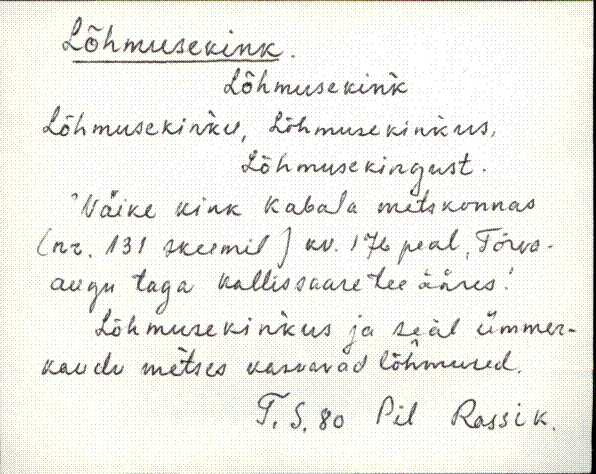 Lõhmusekink.
Lõhmusekink
Lõhmusekinku, Lõhmusekinkus,
Lõhmusekingust.
"Näike kink Kabala metskonnas
(nr. 131 skeemil) kv. 176 peal, Tõrva-
augu taga Kallissaare tee ääres!
Lõhmusekinkus ja seäl ümmer-
kaudu metses kasvavad lõhmused.
T. S. 80 Pil Rassik.